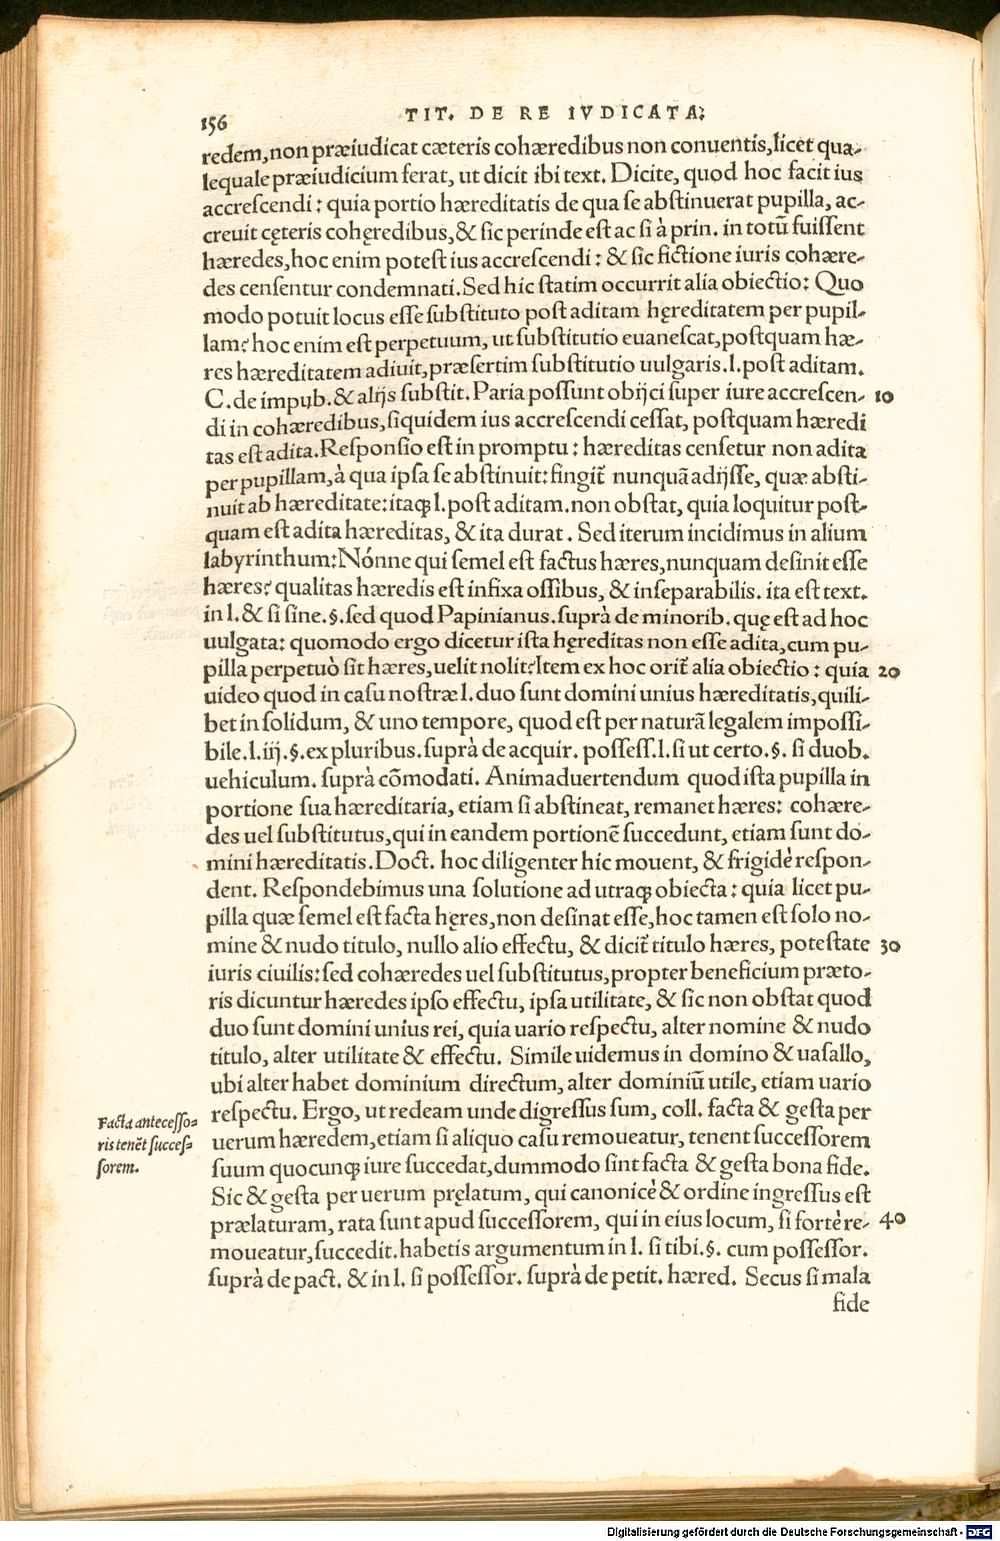 156
TIT. DE RE IVDICATA.
redem, non præiudicat cæteris cohæredibus non conuentis, licet qua-
lequale præiudicium ferat, ut dicit ibi text. Dicite, quod hoc facit ius
accrescendi: quia portio hæreditatis de qua se abstinuerat pupilla, ac-
creuit cęteris cohęredibus, & sic perinde est ac si à prin. in totũ fuissent
hæredes, hoc enim potest ius accrescendi: & sic fictione iuris cohære-
des censentur condemnati. Sed hic statim occurrit alia obiectio: Quo
modo potuit locus esse substituto post aditam hęreditatem per pupil-
lam? hoc enim est perpetuum, ut substitutio euanescat, postquam hæ-
res hæreditatem adiuit, præsertim substitutio uulgaris. l. post aditam.
C. de impub. & alijs substit. Paria possunt obijci super iure accrescen- 10
di in cohæredibus, siquidem ius accrescendi cessat, postquam hæredi
tas est adita. Responsio est in promptu: hæreditas censetur non adita
per pupillam, à qua ipsa se abstinuit: fingit̃ nunquã adijsse, quæ absti-
nuit ab hæreditate: itaq; l. post aditam. non obstat, quia loquitur post-
quam est adita hæreditas, & ita durat. Sed iterum incidimus in alium
labyrinthum: Nónne qui semel est factus hæres, nunquam desinit esse
hæres? qualitas hæredis est infixa ossibus, & inseparabilis. ita est text.
in l. & si sine. §. sed quod Papinianus. suprà de minorib. quę est ad hoc
uulgata: quomodo ergo dicetur ista hęreditas non esse adita, cum pu-
pilla perpetuò sit hæres, uelit nolit? Item ex hoc orit̃ alia obiectio: quia 20
uideo quod in casu nostræ l. duo sunt domini unius hæreditatis, quili-
bet in solidum, & uno tempore, quod est per naturã legalem impossi-
bile. l. iij. §. ex pluribus. suprà de acquir. possess. l. si ut certo. §. si duob.
uehiculum. suprà cõmodati. Animaduertendum quod ista pupilla in
portione sua hæreditaria, etiam si abstineat, remanet hæres: cohære-
des uel substitutus, qui in eandem portionẽ succedunt, etiam sunt do-
mini hæreditatis. Doct. hoc diligenter hic mouent, & frigidè respon-
dent. Respondebimus una solutione ad utraq; obiecta: quia licet pu-
pilla quæ semel est facta hęres, non desinat esse, hoc tamen est solo no-
mine & nudo titulo, nullo alio effectu, & dicit̃ titulo hæres, potestate 30
iuris ciuilis: sed cohæredes uel substitutus, propter beneficium præto-
ris dicuntur hæredes ipso effectu, ipsa utilitate, & sic non obstat quod
duo sunt domini unius rei, quia uario respectu, alter nomine & nudo
titulo, alter utilitate & effectu. Simile uidemus in domino & uasallo,
ubi alter habet dominium directum, alter dominiũ utile, etiam uario
respectu. Ergo, ut redeam unde digressus sum, coll. facta & gesta per
uerum hæredem, etiam si aliquo casu remoueatur, tenent successorem
suum quocunq; iure succedat, dummodo sint facta & gesta bona fide.
Sic & gesta per uerum pręlatum, qui canonicè & ordine ingressus est
prælaturam, rata sunt apud successorem, qui in eius locum, si fortè re- 40
moueatur, succedit. habetis argumentum in l. si tibi. §. cum possessor.
suprà de pact. & in l. si possessor. suprà de petit. hæred. Secus si mala
fide
Facta antecesso-
ris tenẽt succes-
sorem.
Digitalisierung gefördert durch die Deutsche Forschungsgemeinschaft - DFG